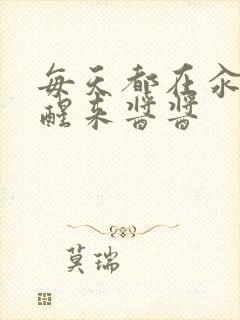 每天都在汆
醒来酱酱
莫瑞